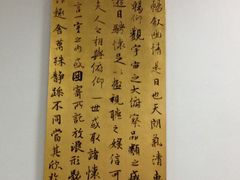 暢敘幽情是日也天朗氣清
暢仰觀宇宙之大俯察品類之
遊目騁懷足以極視聽之娛信可
夫人之相與俯仰一世或取諸懷
言一室之內或因寄所託放浪形骸
趣舍萬殊靜躁不同當其欣於